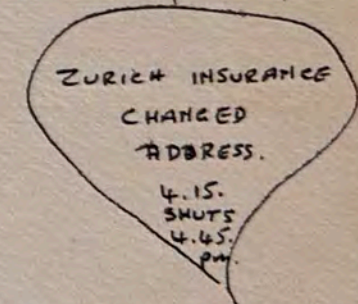 ZURICH INSURANCE
CHANGED
ADDRESS.
4.15.
SHUTS
4.45.
pm.